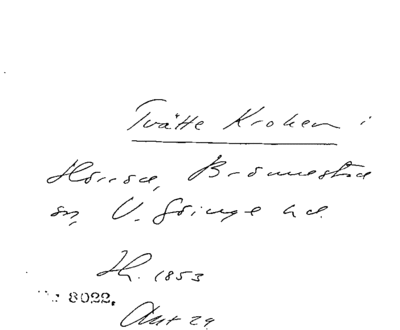 Tvätte Kroken i
Hörröd, Brönnestad
sn, V. Göinge hd.
Th. 1853
Nr 8022.
Akt 29